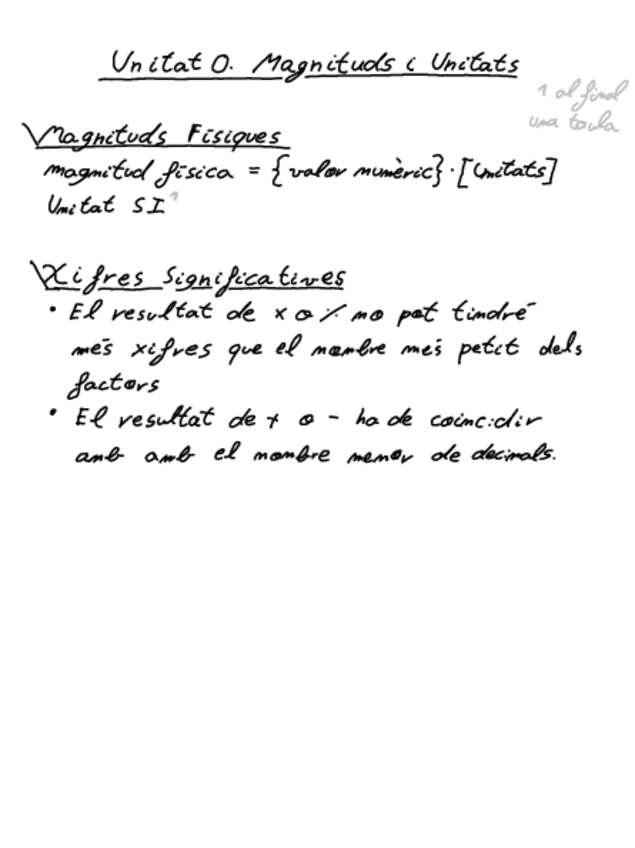 Unitat 0. Magnituds i Unitats
1 al final
una taula
Magnituds Físiques
magnitud física = {valor numèric} · [Unitats]
Unitat SI ¹
Xifres Significatives
• El resultat de x o ÷ no pot tindré
més xifres que el nombre més petit dels
factors
• El resultat de + o - ha de coincidir
amb amb el nombre menor de decimals.